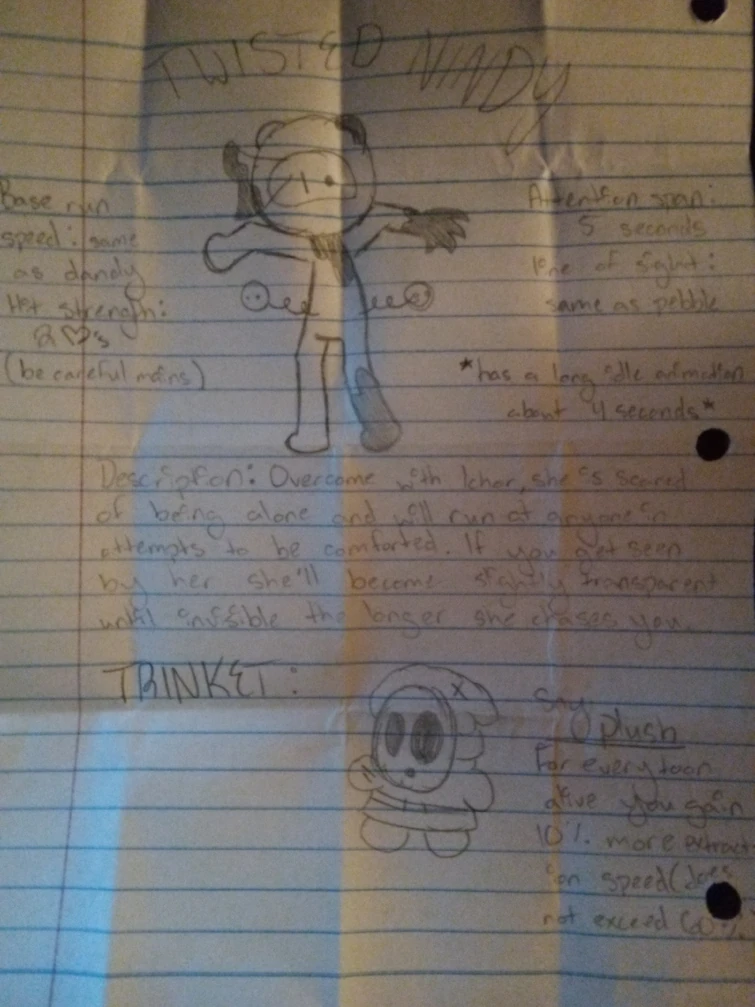 TWISTED NINDY
Base run
speed: same
as dandy
Hit strength:
2 ♡'s
(be careful mains)
Attention span:
5 seconds
line of sight:
same as pebble
*has a long idle animation
about 4 seconds*
Description: Overcome with Ichor, she is scared
of being alone and will run at anyone in
attempts to be comforted. If you get seen
by her she'll become slightly transparent
until invisible the longer she chases you.
TRINKET:
plush
For every toon
alive you gain
10% more extract-
ion speed (does
not exceed 60%)